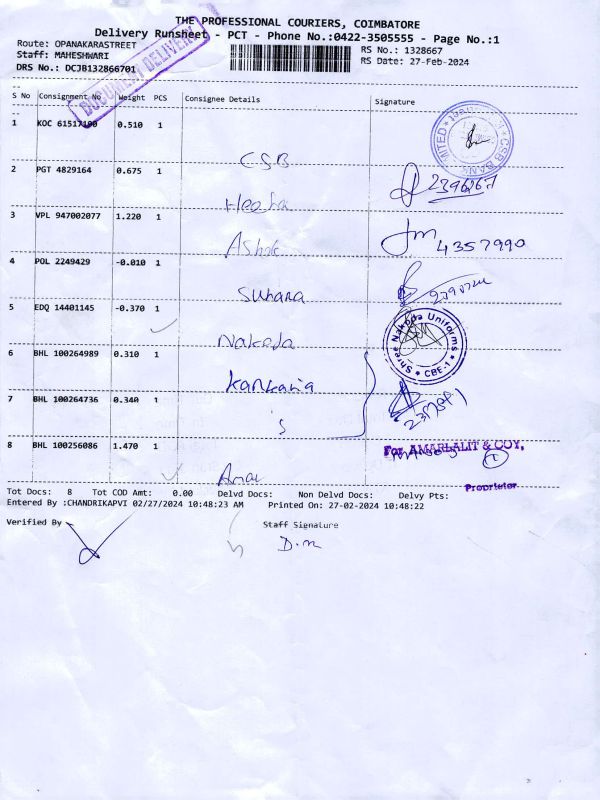 THE PROFESSIONAL COURIERS, COIMBATORE
Delivery Runsheet - PCT - Phone No.:0422-3505555 - Page No.:1
Route: OPANAKARASTREET
RS No.: 1328667
Staff: MAHESHWARI
RS Date: 27-Feb-2024
DRS No.: DCJB132866701
DOCUMENT DELIVERY
S No Consignment No Weight PCS Consignee Details Signature
1 KOC 61517190 0.510 1 CSB
CSB BANK LIMITED
2 PGT 4829164 0.675 1
3 VPL 947002077 1.220 1 Ashok 4357990
4 POL 2249429 -0.010 1 Suhana
5 EDQ 14401145 -0.370 1 Nakoda
Shree Nakoda Uniforms * CBE-1 *
6 BHL 100264989 0.310 1 Kankaria
7 BHL 100264736 0.340 1
8 BHL 100256086 1.470 1
For AMARLALIT & COY,
Proprietor
Tot Docs: 8 Tot COD Amt: 0.00 Delvd Docs: Non Delvd Docs: Delvy Pts:
Entered By :CHANDRIKAPVI 02/27/2024 10:48:23 AM Printed On: 27-02-2024 10:48:22
Verified By Staff Signature
D.m